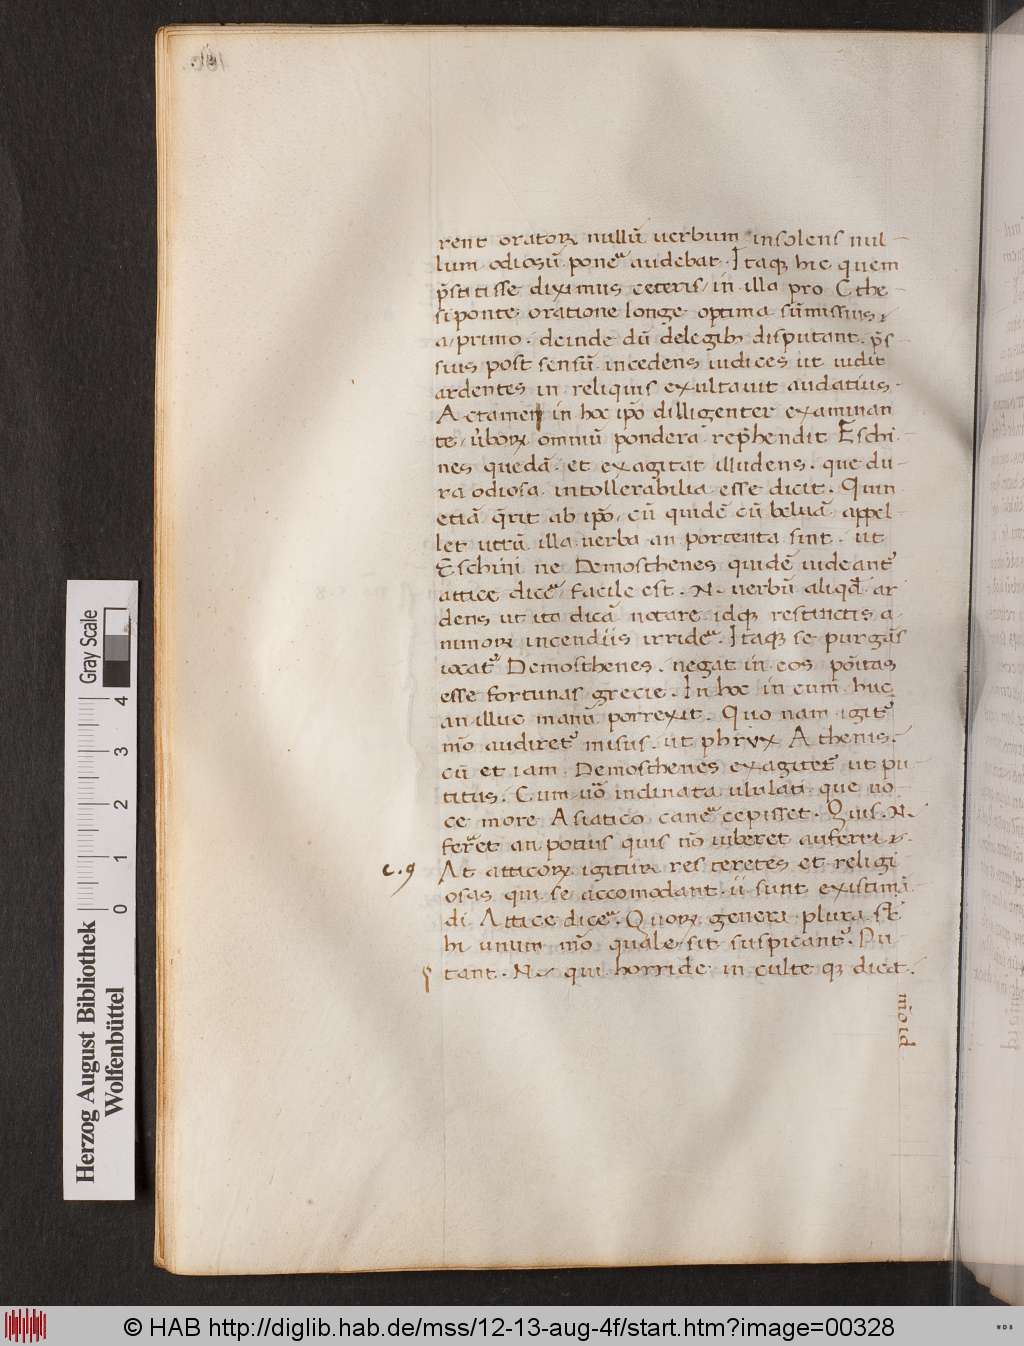 rent oratoꝝ nullū verbum insolens nul-
lum odiosū ponēʳ audebat. Itaqꝫ hic quem
p̄stitisse diximus ceteris, in illa pro Cthe-
siponte oratione longe optima sūmissius,
a primo. deinde dū delegibꝫ disputant. p̄s
suis post sensū incedens iudices ut uidit
ardentes in reliquis exultauit audatius.
Actamen in hoc ip̄o dilligenter examinan
te uerboꝝ omniū pondera rep̄hendit Eschi
nes quedā. et exagitat illudens. que du-
ra odiosa intollerabilia esse dicit. Quin
etiā q̄rit ab ip̄o, cū quidē cū beluā appel-
let utrū illa uerba an portenta sint. ut
Eschini ne Demosthenes quidē uideantʳ
attice dicēʳ facile est. N. uerbū aliqđ ar
dens ut ita dicā notare idqꝫ restinctis a-
nimoꝝ incendiis irridēʳ. Itaqꝫ se purgās
iocatʳ Demosthenes. negat in eos pōitas
esse fortunas grecie. In hoc in eum huc
an illuc manū porrexit. Quo nam igitʳ
mō audiretʳ misus. ut phryx Athenis.
cū et iam Demosthenes exagitetʳ ut pu
titus. Cum uō inclinata ululati que uo
ce more Asiatico canēʳ cepisset. Quis. N.
ferret an potius quis nō iuberet auferri.
c. 9 At atticoꝝ igitur res teretes et religi
osas qui se accomodant. ii sunt existimā
di Attice dicēʳ. Quoꝝ generi plura. sꝫ
hi unum mō quale sit suspicantʳ. Pu
tant. N. qui horride in culte qꝫ dicat.
mōid
Gray Scale
4 3 2 1 0
Herzog August Bibliothek
Wolfenbüttel
© HAB http://diglib.hab.de/mss/12-13-aug-4f/start.htm?image=00328